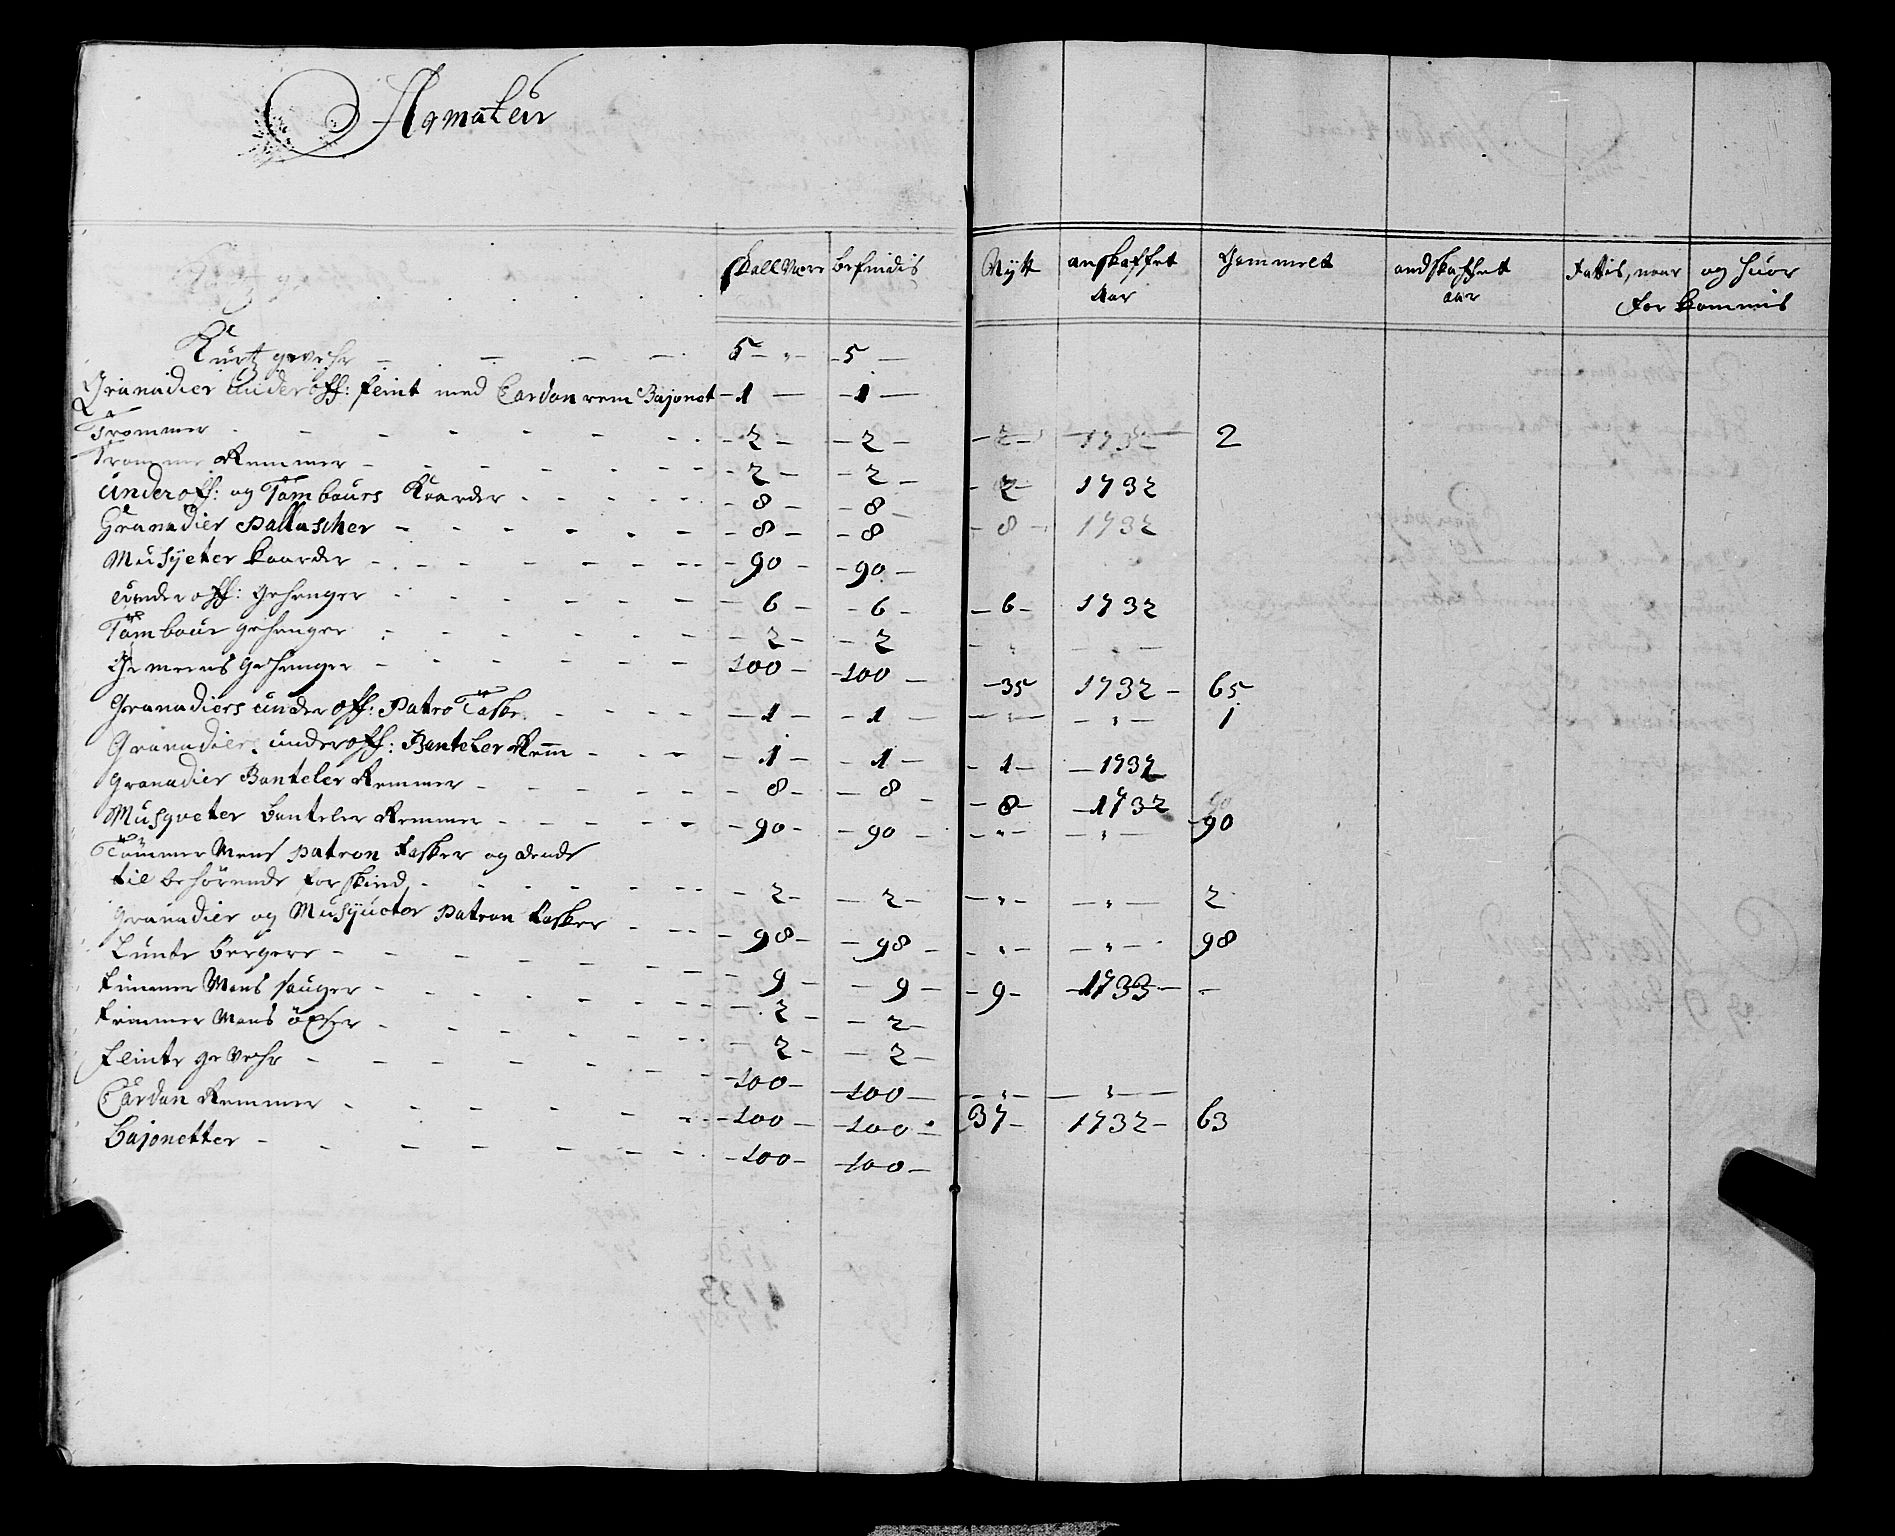 Armateur
skall Være befindis Nytt anskaffet Aar Gammelt andskaffet aar fattis, naar og huor
for kommis
Kurtz gevehr - 5 - 5 -
Granadier under off: flint med Cardon rem Bajonet - 1 - - 1 -
Trommer - 2 - - 2 - - 2 - 1732 2
Tromme Remmer - 2 - - 2 - - 2 - 1732
Underoff: og Tambours Kaarder - 8 - - 8 - - 8 - 1732
Granadier Pallascher - 8 - - 8 -
Musqueter kaarder - 90 - - 90 -
under off: gehenger - 6 - - 6 - - 6 - 1732
Tambour gehenger - 2 - - 2 -
Gemeens gehenger - 100 - - 100 - - 35 1732 - 65
Granadiers under off: Patro Taske - 1 - - 1 - 1
Granadiers underoff: Banteler Rem - 1 - - 1 - - 1 - - 1732
Granadier Banteler Remmer - 8 - - 8 - - 8 - - 1732
Musqveter banteler Remmer - 90 - - 90 - 90
Tömmer Mens patron tasker og dends
til behörende forskind - 2 - - 2 - 2
Granadier og Musqueter Patron tasker - 98 - - 98 - 98
Lunte bergere - 9 - - 9 - - 9 - - 1733 -
timmer Mens sauger - 2 - - 2 -
timmer Mens öxer - 2 - - 2 -
flinte geVehr - 100 - - 100 -
Cardon Remmer - 100 - - 100 - 37 - 1732 - 63
bajonetter - 100 - - 100 -